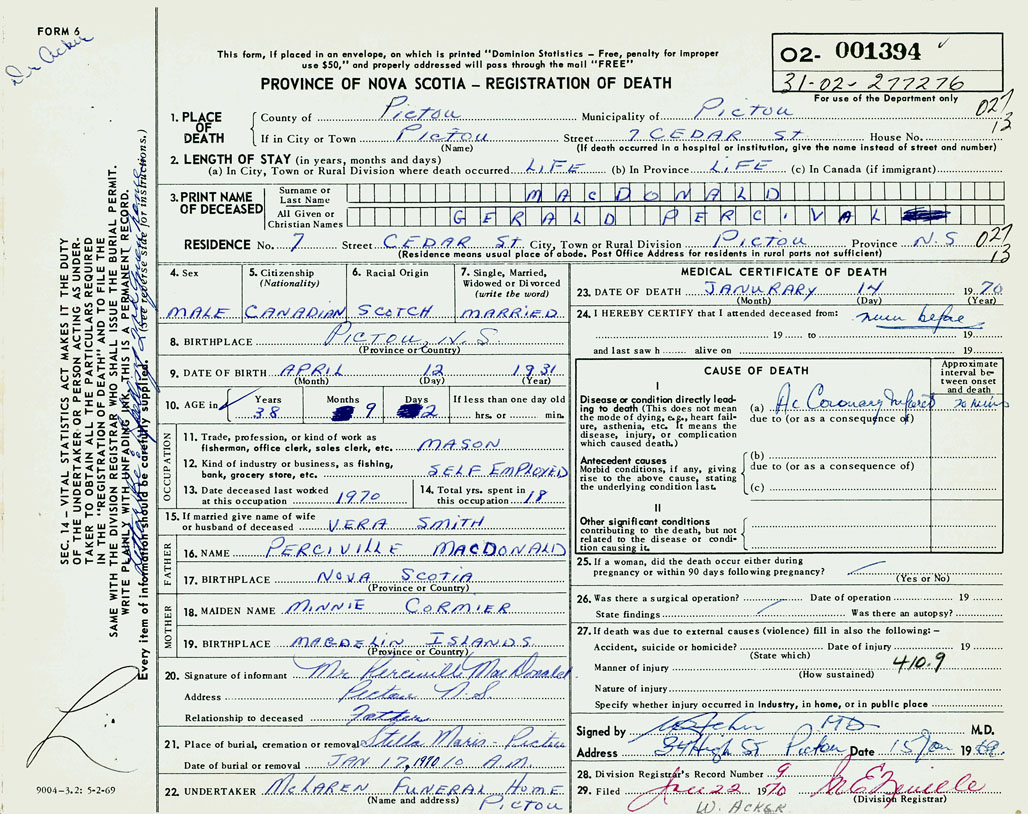 FORM 6
Dr Acker
This form, if placed in an envelope, on which is printed "Dominion Statistics – Free, penalty for improper
use $50," and properly addressed will pass through the mail "FREE"
PROVINCE OF NOVA SCOTIA – REGISTRATION OF DEATH
02- 001394
31-02-277276
For use of the Department only
027
13
1. PLACE OF DEATH
County of Pictou Municipality of Pictou
If in City or Town Pictou Street 7 CEDAR St House No.
(Name) (If death occurred in a hospital or institution, give the name instead of street and number)
2. LENGTH OF STAY (in years, months and days)
(a) In City, Town or Rural Division where death occurred LIFE (b) In Province LIFE (c) In Canada (if immigrant)
3. PRINT NAME OF DECEASED
Surname or Last Name MACDONALD
All Given or Christian Names GERALD PERCIVAL
RESIDENCE No. 7 Street CEDAR St. City, Town or Rural Division PICTOU Province N.S
(Residence means usual place of abode. Post Office Address for residents in rural parts not sufficient)
027
13
4. Sex
MALE
5. Citizenship (Nationality)
CANADIAN
6. Racial Origin
SCOTCH
7. Single, Married, Widowed or Divorced (write the word)
MARRIED
8. BIRTHPLACE PICTOU, N.S
(Province or Country)
9. DATE OF BIRTH APRIL 12 1931
(Month) (Day) (Year)
10. AGE in Years 38 Months 9 Days 2 If less than one day old
hrs. or min.
OCCUPATION
11. Trade, profession, or kind of work as
fisherman, office clerk, sales clerk, etc. MASON
12. Kind of industry or business, as fishing,
bank, grocery store, etc. SELF EMPLOYED
13. Date deceased last worked
at this occupation 1970
14. Total yrs. spent in
this occupation 18
15. If married give name of wife
or husband of deceased VERA SMITH
FATHER
16. NAME PERCIVILLE MACDONALD
17. BIRTHPLACE NOVA SCOTIA
(Province or Country)
MOTHER
18. MAIDEN NAME MINNIE CORMIER
19. BIRTHPLACE MAGDELIN ISLANDS
(Province or Country)
20. Signature of informant Mr Perciville MacDonald
Address Pictou N.S
Relationship to deceased Father
21. Place of burial, cremation or removal Stella Maris Pictou
Date of burial or removal JAN 17, 1970 10 A.M.
22. UNDERTAKER McLAREN FUNERAL HOME
(Name and address) PICTOU
MEDICAL CERTIFICATE OF DEATH
23. DATE OF DEATH JANURARY 14 1970
(Month) (Day) (Year)
24. I HEREBY CERTIFY that I attended deceased from:
19 to 19
and last saw h alive on 19
CAUSE OF DEATH
Approximate interval between onset and death
I
Disease or condition directly leading to death (This does not mean the mode of dying, e.g., heart failure, asthenia, etc. It means the disease, injury, or complication which caused death.)
(a) Ac Coronary Infarct
due to (or as a consequence of)
Antecedent causes
Morbid conditions, if any, giving rise to the above cause, stating the underlying condition last.
(b)
due to (or as a consequence of)
(c)
II
Other significant conditions
contributing to the death, but not related to the disease or condition causing it.
25. If a woman, did the death occur either during
pregnancy or within 90 days following pregnancy?
(Yes or No)
26. Was there a surgical operation? Date of operation 19
State findings Was there an autopsy?
27. If death was due to external causes (violence) fill in also the following: –
Accident, suicide or homicide? Date of injury 19
(State which)
Manner of injury 410.9
(How sustained)
Nature of injury
Specify whether injury occurred in industry, in home, or in public place
Signed by MD M.D.
Address High St Pictou Date 15 Jan 19
28. Division Registrar's Record Number 9
29. Filed Jan 22 1970
(Division Registrar)
W. ACKER
SEC. 14 – VITAL STATISTICS ACT MAKES IT THE DUTY
OF THE UNDERTAKER OR PERSON ACTING AS UNDERTAKER
TO OBTAIN ALL THE PARTICULARS REQUIRED
IN THE "REGISTRATION OF DEATH" AND TO FILE THE
SAME WITH THE DIVISION REGISTRAR WHO SHALL ISSUE THE BURIAL PERMIT.
WRITE PLAINLY WITH UNFADING INK, THIS IS A PERMANENT RECORD.
Every item of information should be carefully supplied. (See reverse side for instructions.)
9004-3.2: 5-2-69